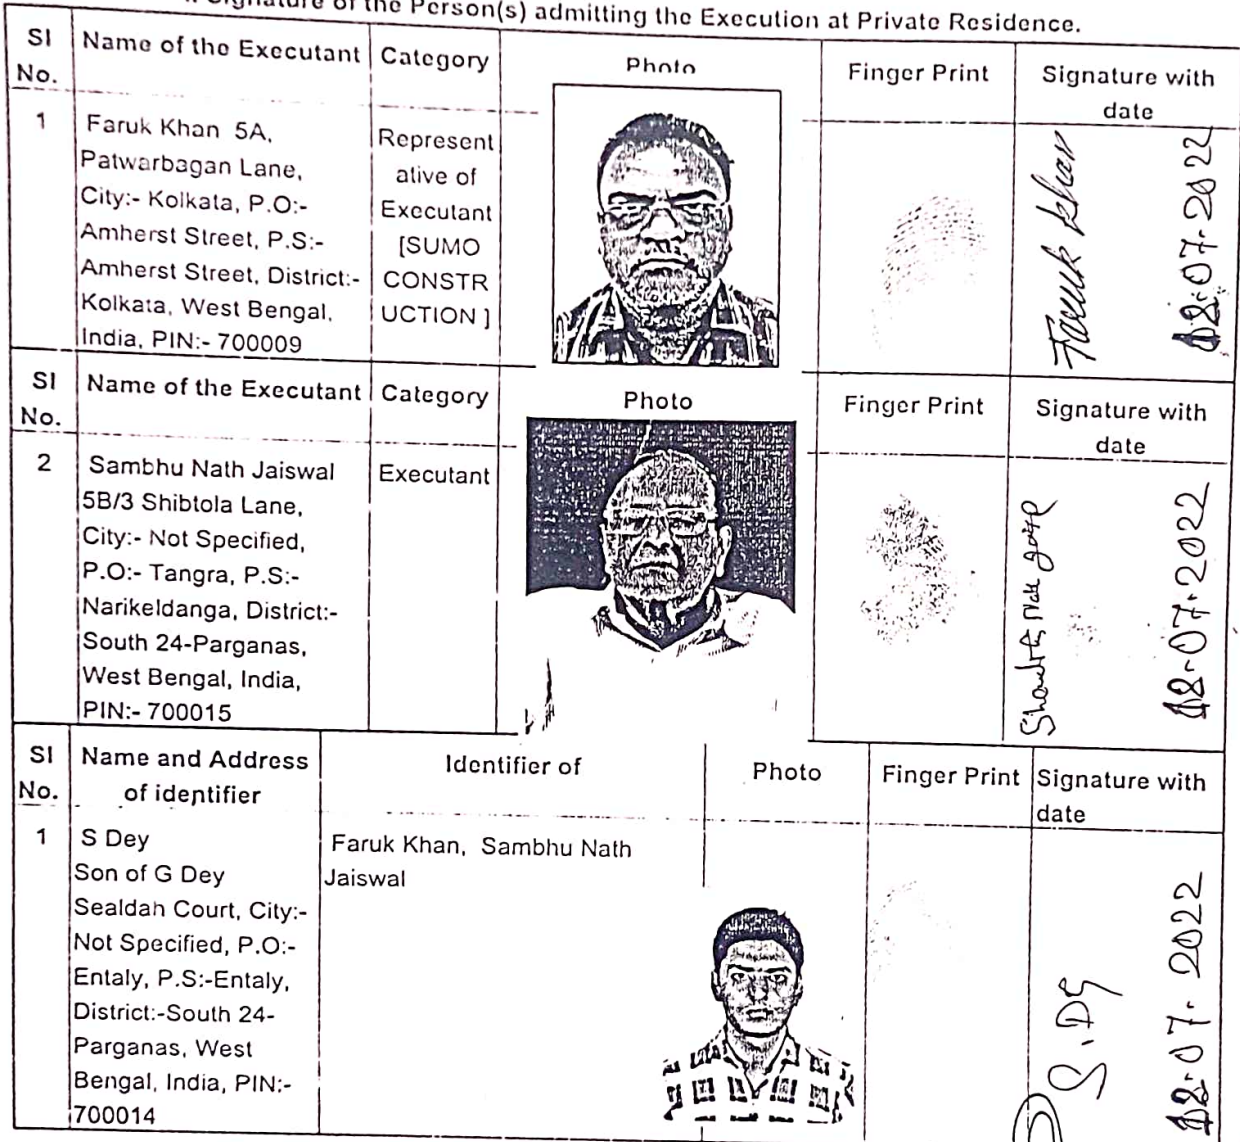 Signature of the Person(s) admitting the Execution at Private Residence.
Sl No. Name of the Executant Category Photo Finger Print Signature with date
1
Faruk Khan 5A,
Patwarbagan Lane,
City:- Kolkata, P.O:-
Amherst Street, P.S:-
Amherst Street, District:-
Kolkata, West Bengal,
India, PIN:- 700009
Represent
ative of
Executant
[SUMO
CONSTR
UCTION ]
Faruk Khan
18.07.2022
Sl No. Name of the Executant Category Photo Finger Print Signature with date
2
Sambhu Nath Jaiswal
5B/3 Shibtola Lane,
City:- Not Specified,
P.O:- Tangra, P.S:-
Narikeldanga, District:-
South 24-Parganas,
West Bengal, India,
PIN:- 700015
Executant
18.07.2022
Sl No. Name and Address of identifier Identifier of Photo Finger Print Signature with date
1
S Dey
Son of G Dey
Sealdah Court, City:-
Not Specified, P.O:-
Entaly, P.S:-Entaly,
District:-South 24-
Parganas, West
Bengal, India, PIN:-
700014
Faruk Khan, Sambhu Nath
Jaiswal
S. Dey
18.07.2022